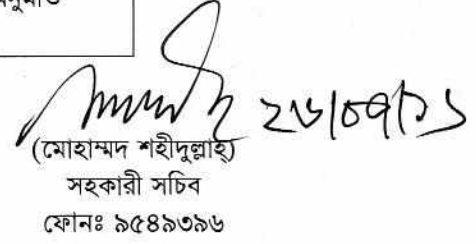 ২৬/০৭/২১
(মোহাম্মদ শহীদুল্লাহ্)
সহকারী সচিব
ফোনঃ ৯৫৪৯৩৯৬